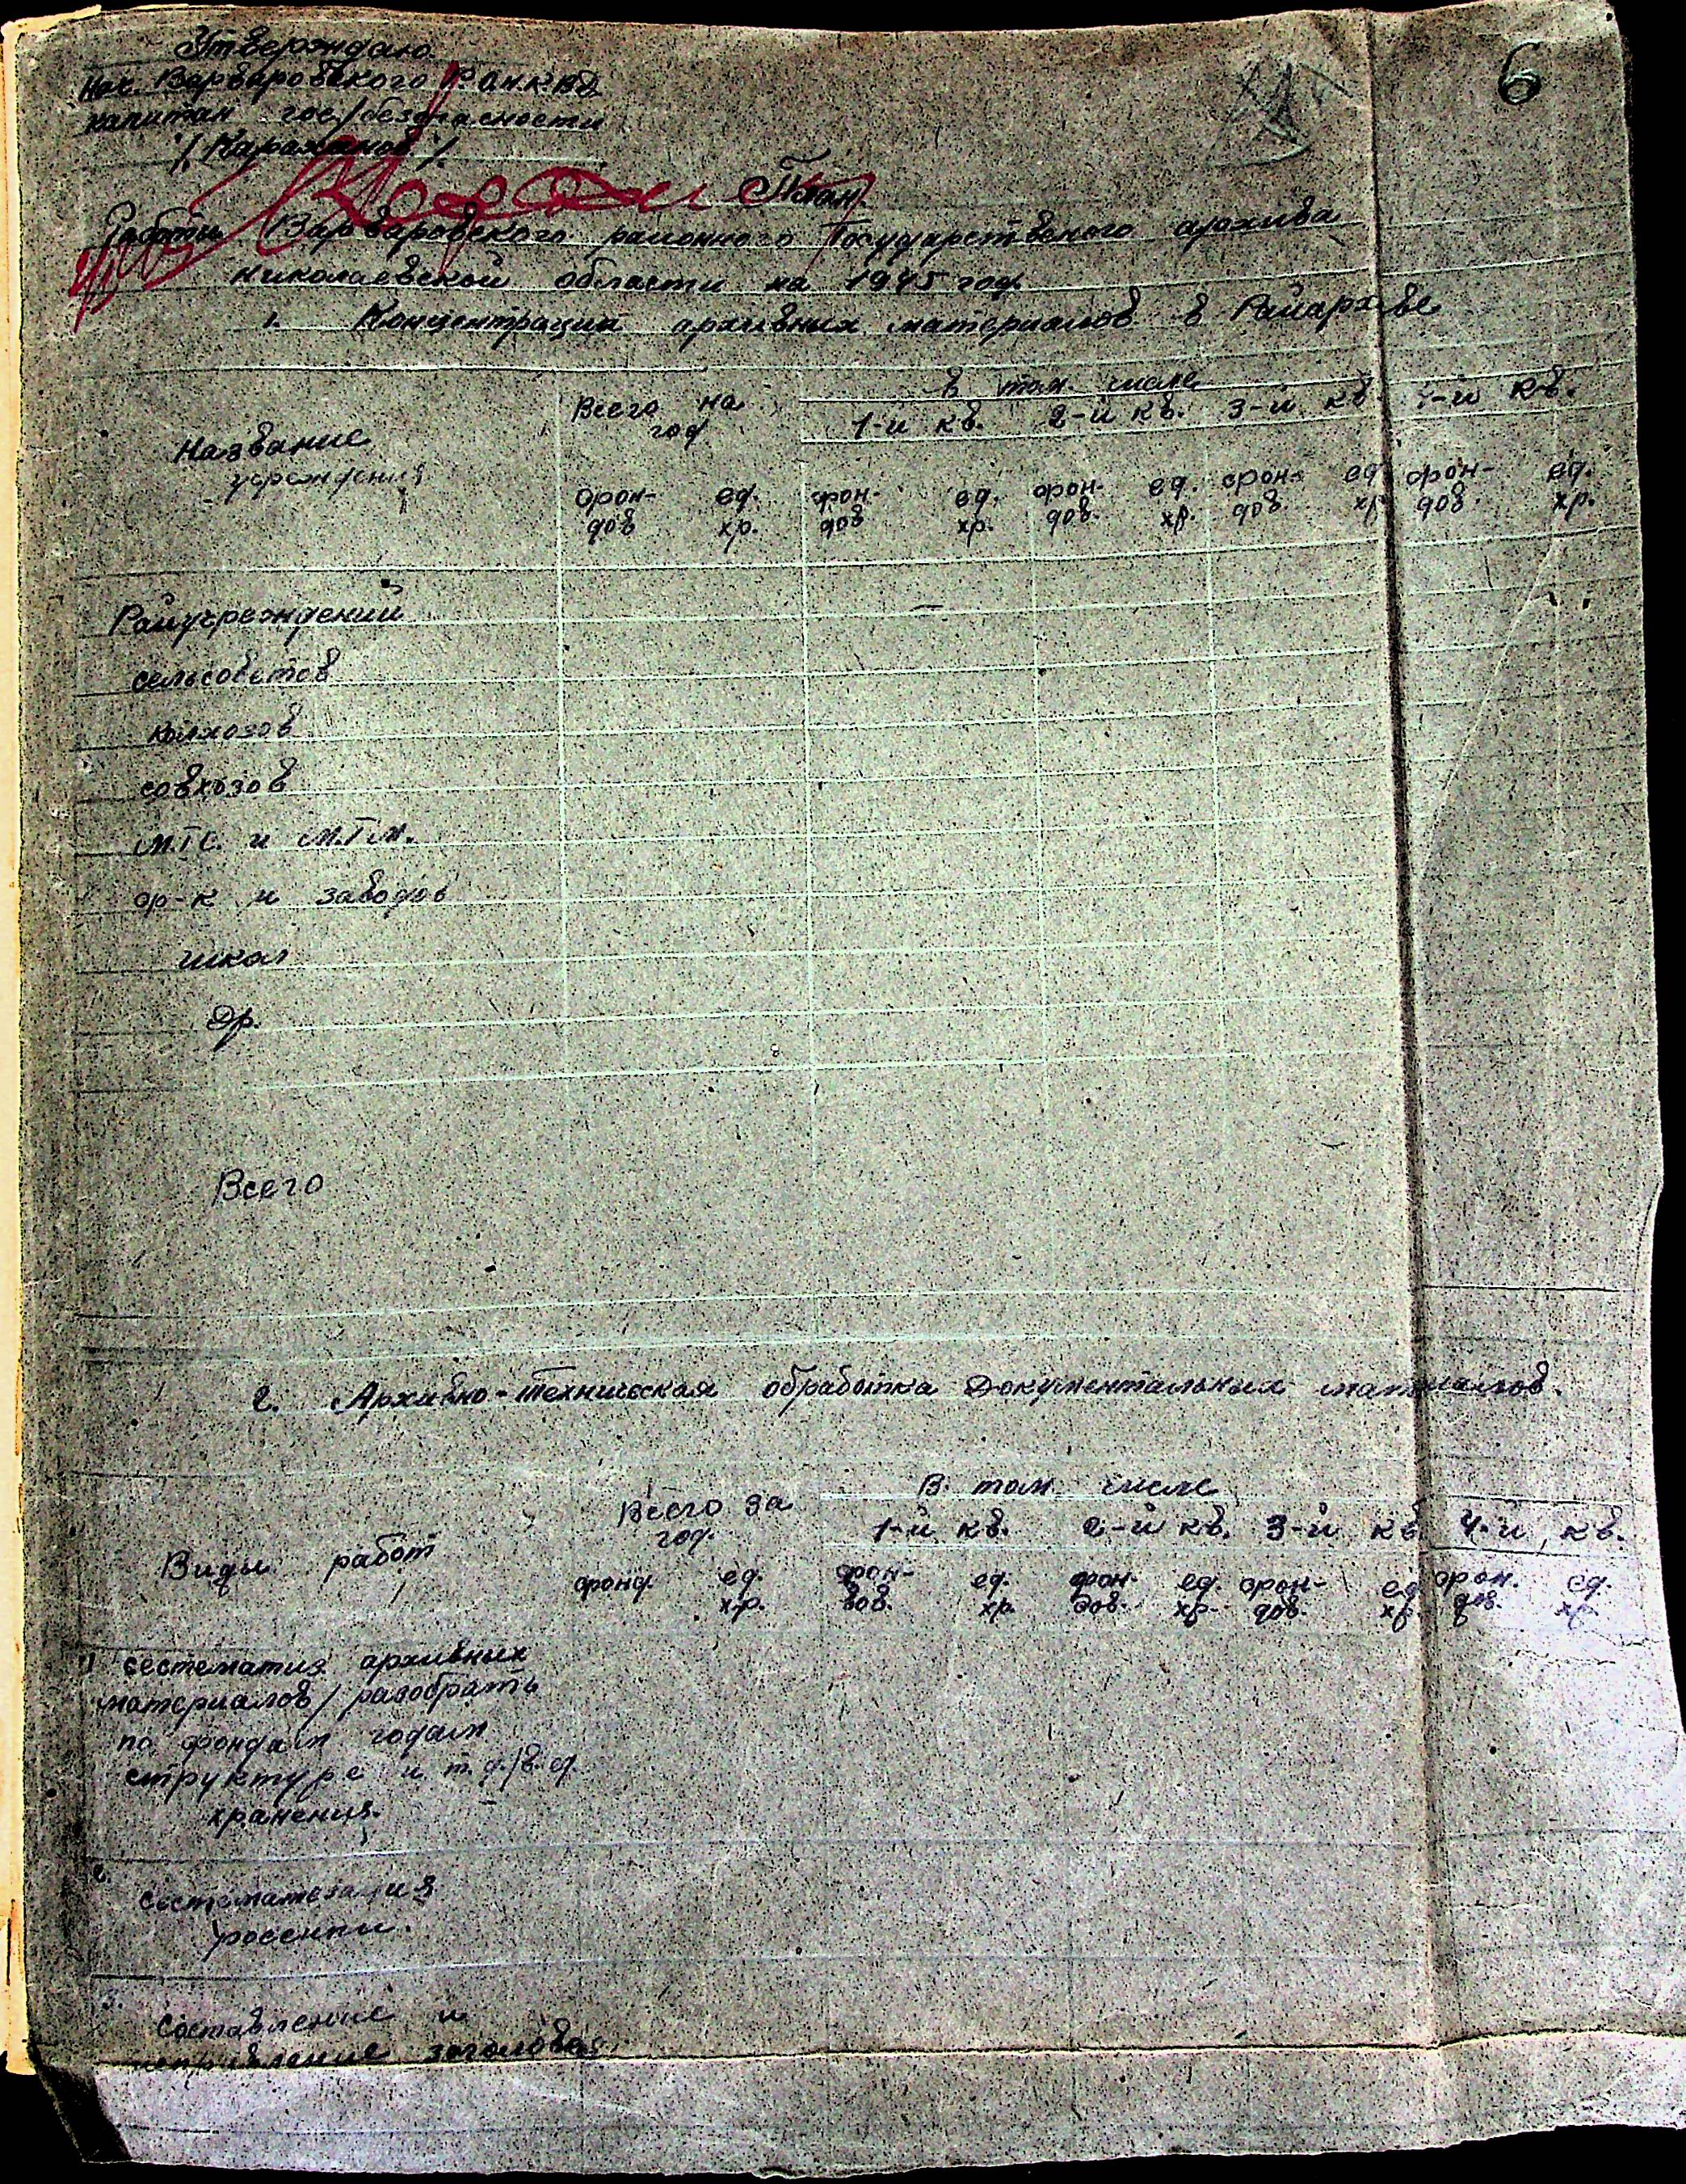 Утверждаю.
Нач. Варваровского Р.О.Н.К.В.Д.
капитан гос/безопасности
/
6
План
Работы Варваровского районного Государственого архива
Николаевской области на 1945 год.
1. Концентрация архивных материалов в Райархиве
Название учреждения
Всего на год
в том числе
1-й кв. 2-й кв. 3-й кв. 4-й кв.
фон- ед. фон- ед. фон- ед. фон- ед. фон- ед.
дов хр. дов хр. дов. хр. дов. хр. дов. хр.
Райучреждений
сельсоветов
колхозов
совхозов
М.Т.С. и М.Т.М.
ф-к и заводов
школ
Др.
Всего
2. Архивно-техническая обработка документальных материалов.
Виды работ
Всего за год.
В том числе
1-й кв. 2-й кв. 3-й кв. 4-й кв.
фонд. ед. фон- ед. фон- ед. фон- ед. фон. ед.
хр. дов. хр. дов. хр. дов. хр. дов. хр.
1 систематия архивных
материалов/разобрать
по фондам годам
структуре и т.д./в ед.
хранения.
2.
систематезация
россыпи.
3.
Составление и
исправление заголовков